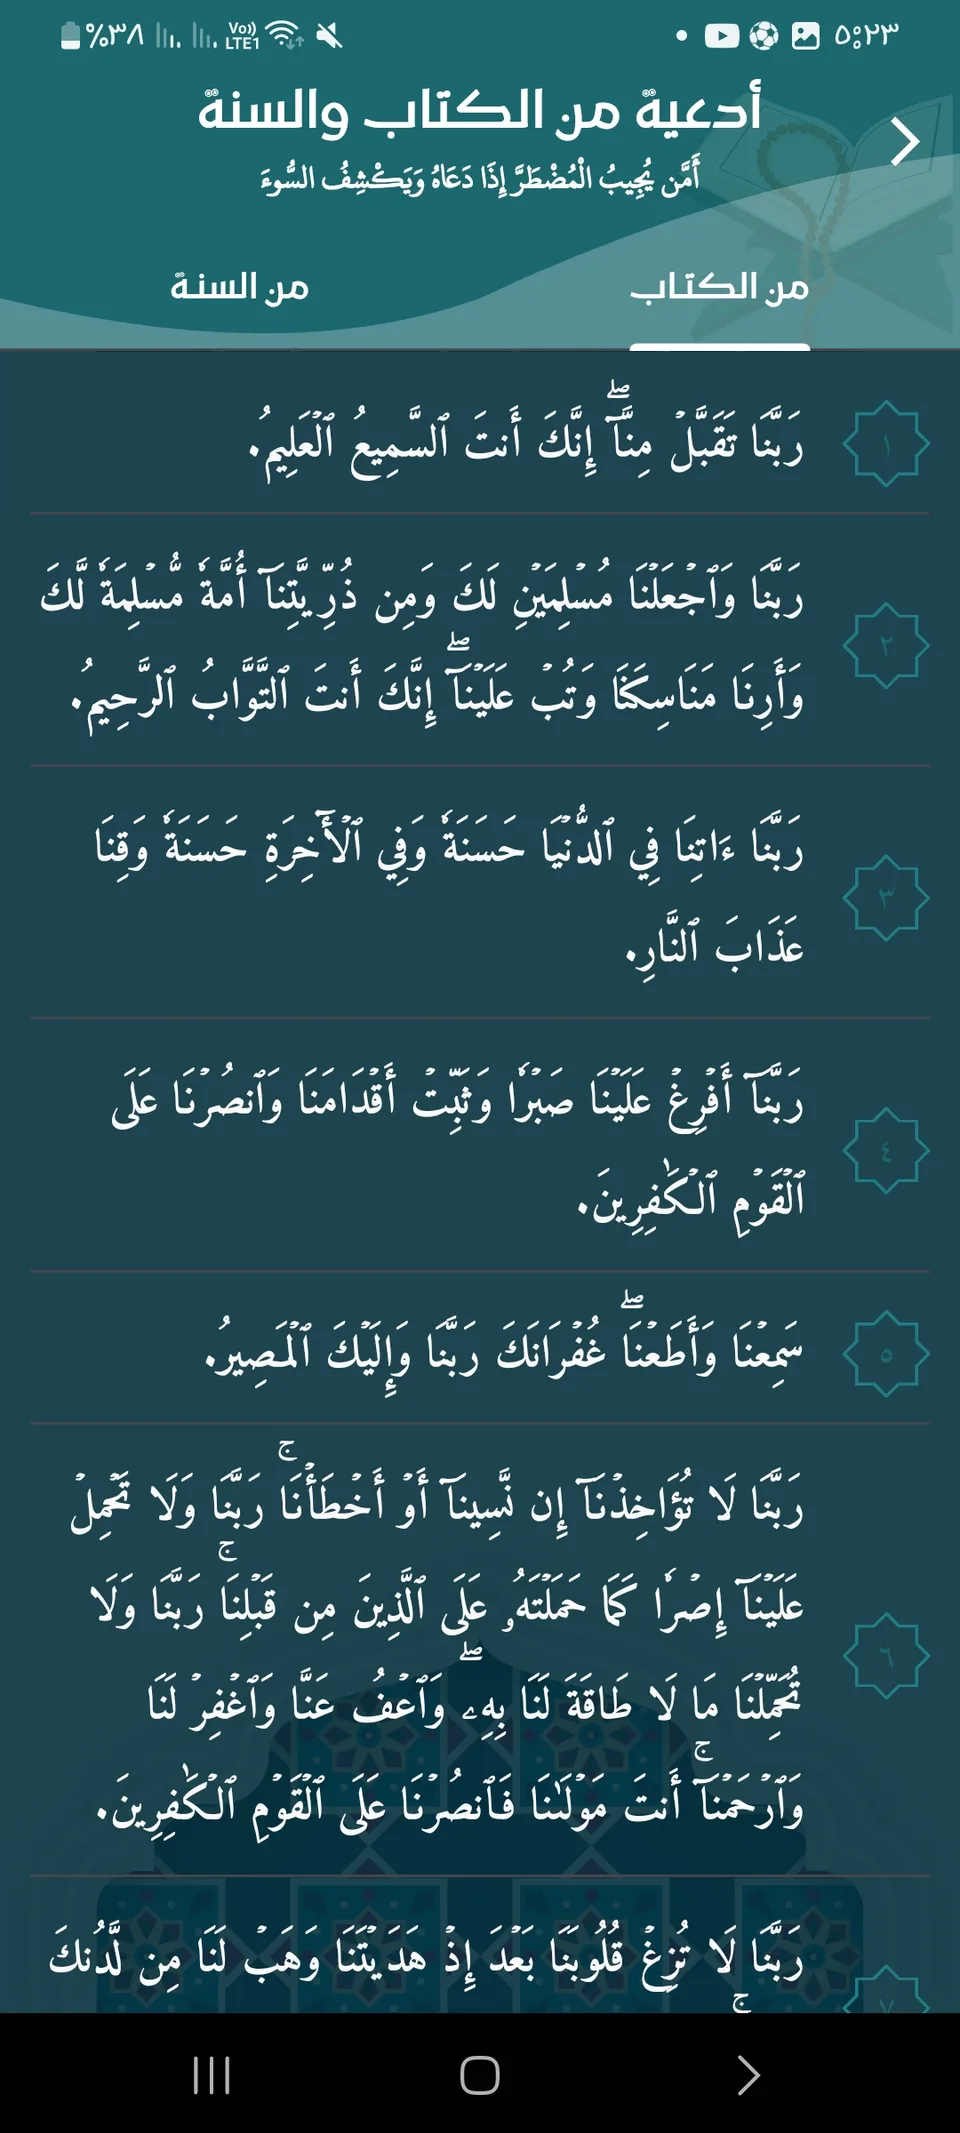 ٥:٢٣
Vo))
LTE1
%٣٨
أدعية من الكتاب والسنة
أَمَّن يُجِيبُ الْمُضْطَرَّ إِذَا دَعَاهُ وَيَكْشِفُ السُّوءَ
من الكتاب
من السنة
١
رَبَّنَا تَقَبَّلۡ مِنَّآۖ إِنَّكَ أَنتَ ٱلسَّمِيعُ ٱلۡعَلِيمُ.
٢
رَبَّنَا وَٱجۡعَلۡنَا مُسۡلِمَيۡنِ لَكَ وَمِن ذُرِّيَّتِنَآ أُمَّةٗ مُّسۡلِمَةٗ لَّكَ
وَأَرِنَا مَنَاسِكَنَا وَتُبۡ عَلَيۡنَآۖ إِنَّكَ أَنتَ ٱلتَّوَّابُ ٱلرَّحِيمُ.
٣
رَبَّنَا ءَاتِنَا فِي ٱلدُّنۡيَا حَسَنَةٗ وَفِي ٱلۡأٓخِرَةِ حَسَنَةٗ وَقِنَا
عَذَابَ ٱلنَّارِ.
٤
رَبَّنَآ أَفۡرِغۡ عَلَيۡنَا صَبۡرٗا وَثَبِّتۡ أَقۡدَامَنَا وَٱنصُرۡنَا عَلَى
ٱلۡقَوۡمِ ٱلۡكَٰفِرِينَ.
٥
سَمِعۡنَا وَأَطَعۡنَاۖ غُفۡرَانَكَ رَبَّنَا وَإِلَيۡكَ ٱلۡمَصِيرُ.
٦
رَبَّنَا لَا تُؤَاخِذۡنَآ إِن نَّسِينَآ أَوۡ أَخۡطَأۡنَاۚ رَبَّنَا وَلَا تَحۡمِلۡ
عَلَيۡنَآ إِصۡرٗا كَمَا حَمَلۡتَهُۥ عَلَى ٱلَّذِينَ مِن قَبۡلِنَاۚ رَبَّنَا وَلَا
تُحَمِّلۡنَا مَا لَا طَاقَةَ لَنَا بِهِۦۖ وَٱعۡفُ عَنَّا وَٱغۡفِرۡ لَنَا
وَٱرۡحَمۡنَآۚ أَنتَ مَوۡلَىٰنَا فَٱنصُرۡنَا عَلَى ٱلۡقَوۡمِ ٱلۡكَٰفِرِينَ.
٧
رَبَّنَا لَا تُزِغۡ قُلُوبَنَا بَعۡدَ إِذۡ هَدَيۡتَنَا وَهَبۡ لَنَا مِن لَّدُنكَ